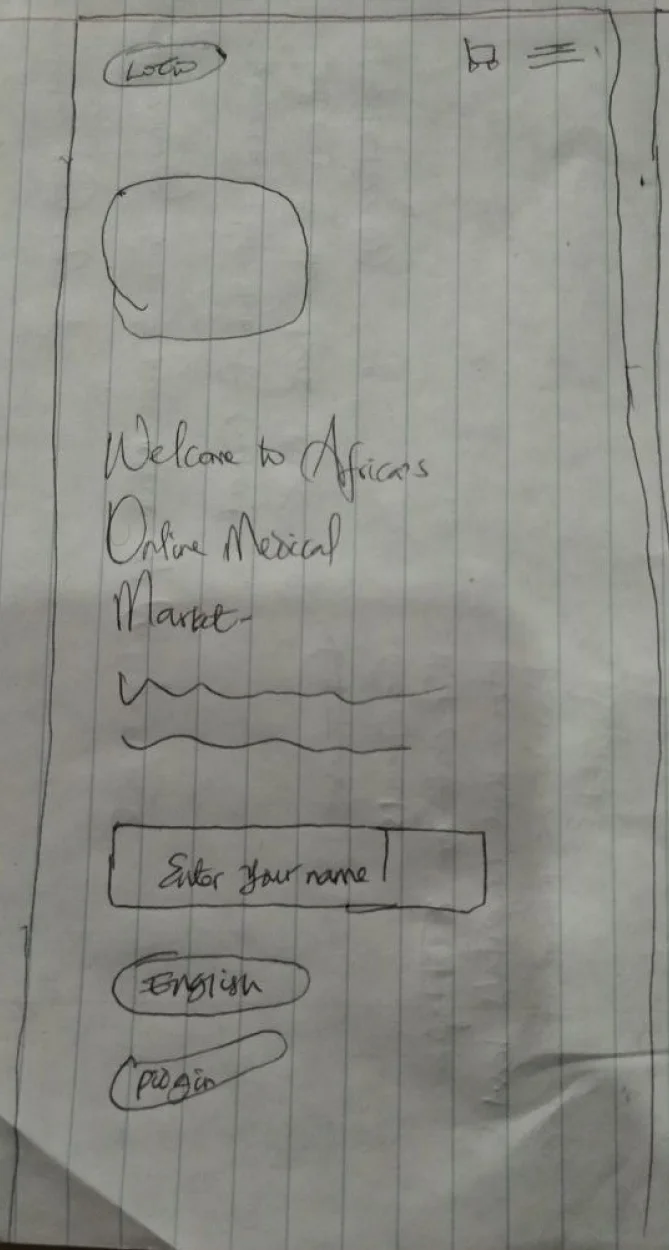 LOGO
Welcome to Africa's
Online Medical
Market
Enter your name
English